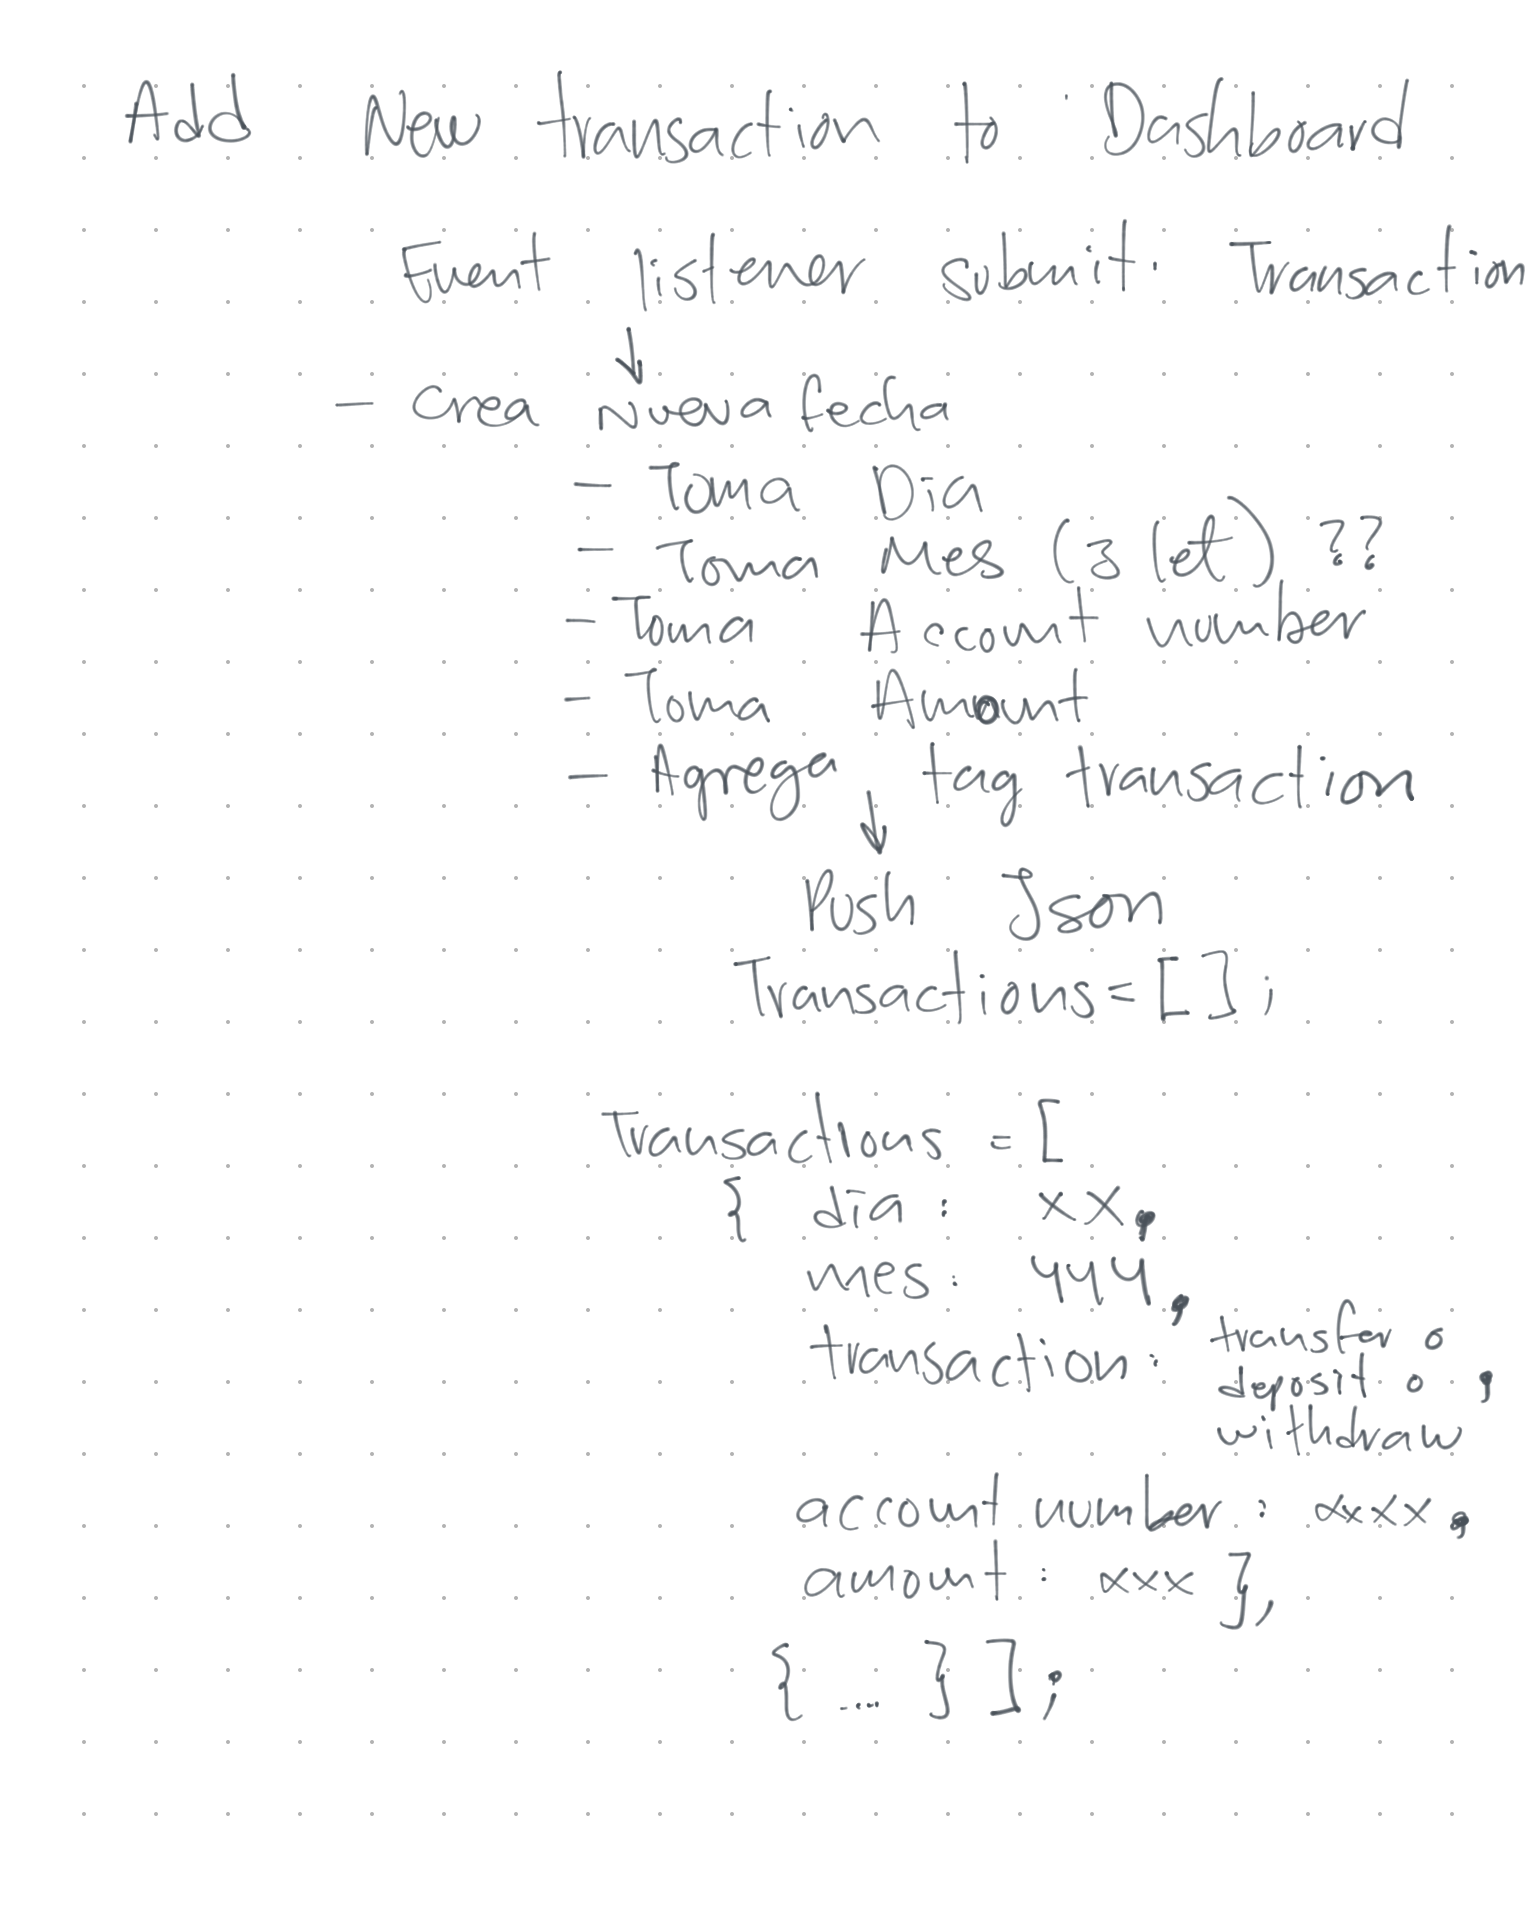 Add New transaction to Dashboard
Event listener submit. Transaction
↓
- Crea Nueva fecha
- Toma Dia
- Toma Mes (3 let) ??
- Toma Account number
- Toma Amount
- Agrega tag transaction
↓
Push Json
Transactions = [ ];
Transactions = [
{ dia : xx,
mes : yyy,
transaction : transfer o
deposit o ,
withdraw
account number : xxxx,
amount : xxx },
{ .... } ];